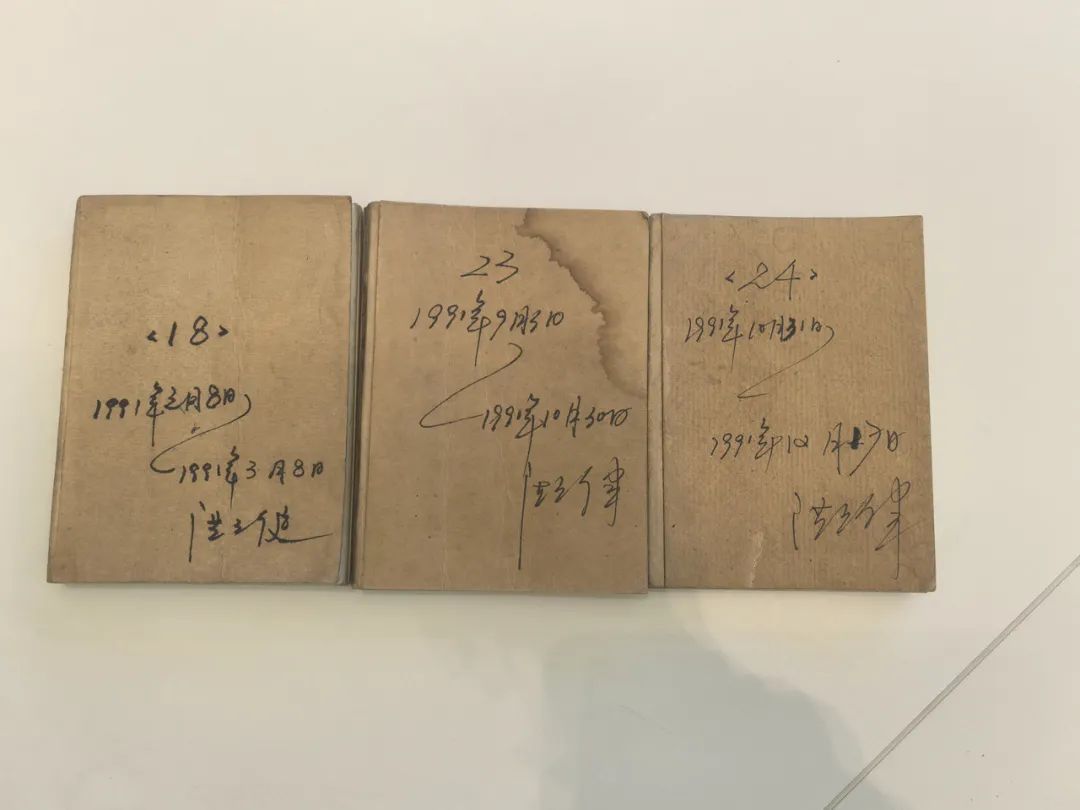 <18>
1991年元月8日
1991年3月8日
23
1991年9月3日
1991年10月30日
<24>
1991年10月31日
1991年12月日